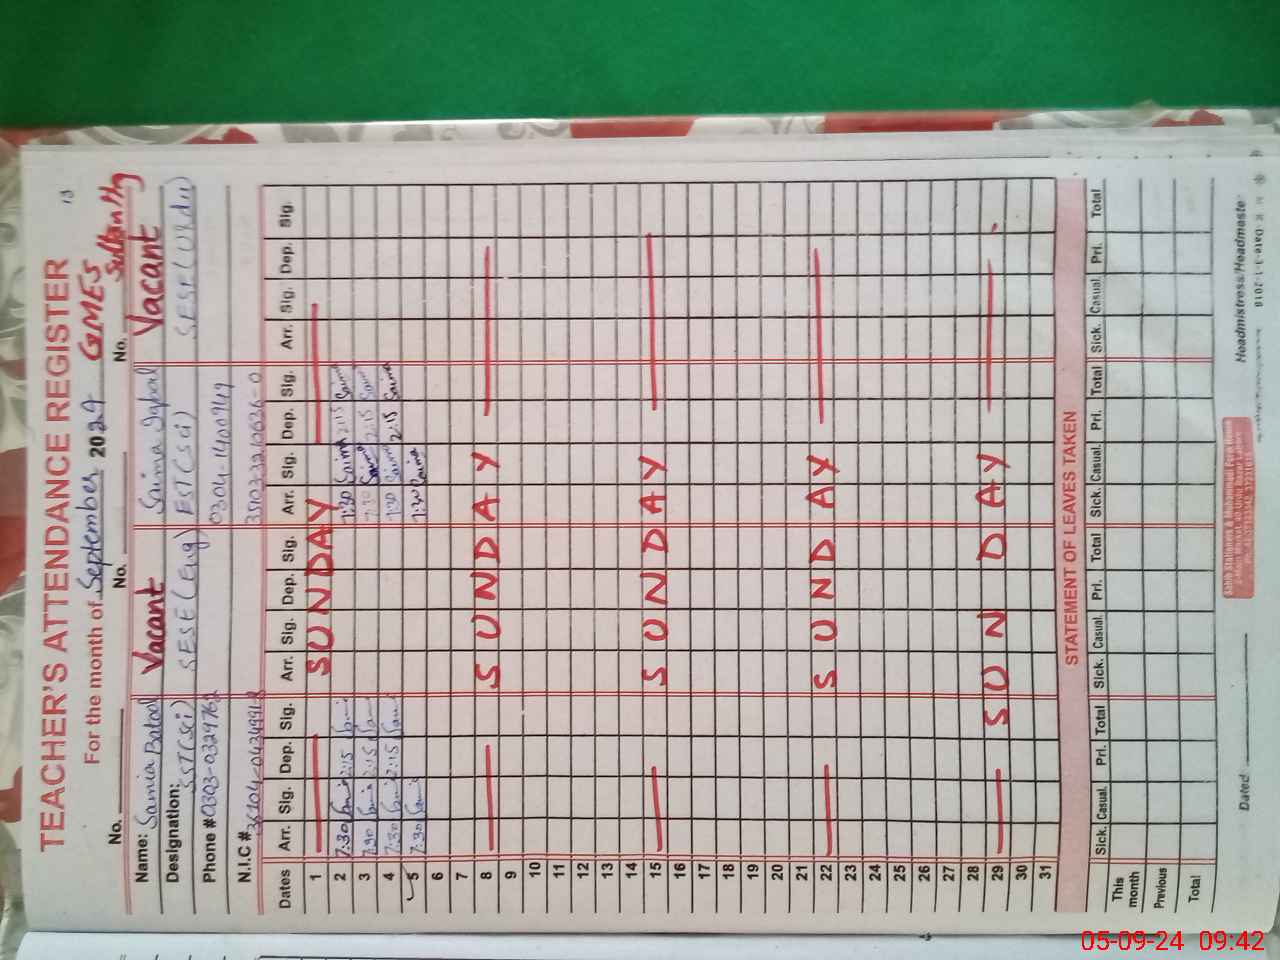 13
TEACHER'S ATTENDANCE REGISTER
For the month of September 2024 GMES
No. No. No. No. Sultan
Name: Samia Batool Vacant Saima Iqbal Vacant
Designation: SST(sci) SESE (Eng) EST(sci) SESE (Urdu)
Phone # 0303-0329762 0304-1400949
N.I.C #
Dates Arr. Sig. Dep. Sig. Arr. Sig. Dep. Sig. Arr. Sig. Dep. Sig. Arr. Sig. Dep. Sig.
1 SUNDAY
2 7:30 Sami 2:15 Sami 7:30 Saima 2:15 Saima
3 7:30 Sami 2:15 Sami 7:30 Saima 2:15 Saima
4 7:30 Sami 2:15 Sami 7:30 Saima 2:15 Saima
5 7:30 Sami 7:30 Saima
6
7
8 SUNDAY
9
10
11
12
13
14
15 SUNDAY
16
17
18
19
20
21
22 SUNDAY
23
24
25
26
27
28
29 SUNDAY
30
31
STATEMENT OF LEAVES TAKEN
Sick. Casual. Pri. Total Sick. Casual. Pri. Total Sick. Casual. Pri. Total Sick. Casual. Pri. Total
This month
Previous
Total
Dated: Headmistress/Headmaster
05-09-24 09:42